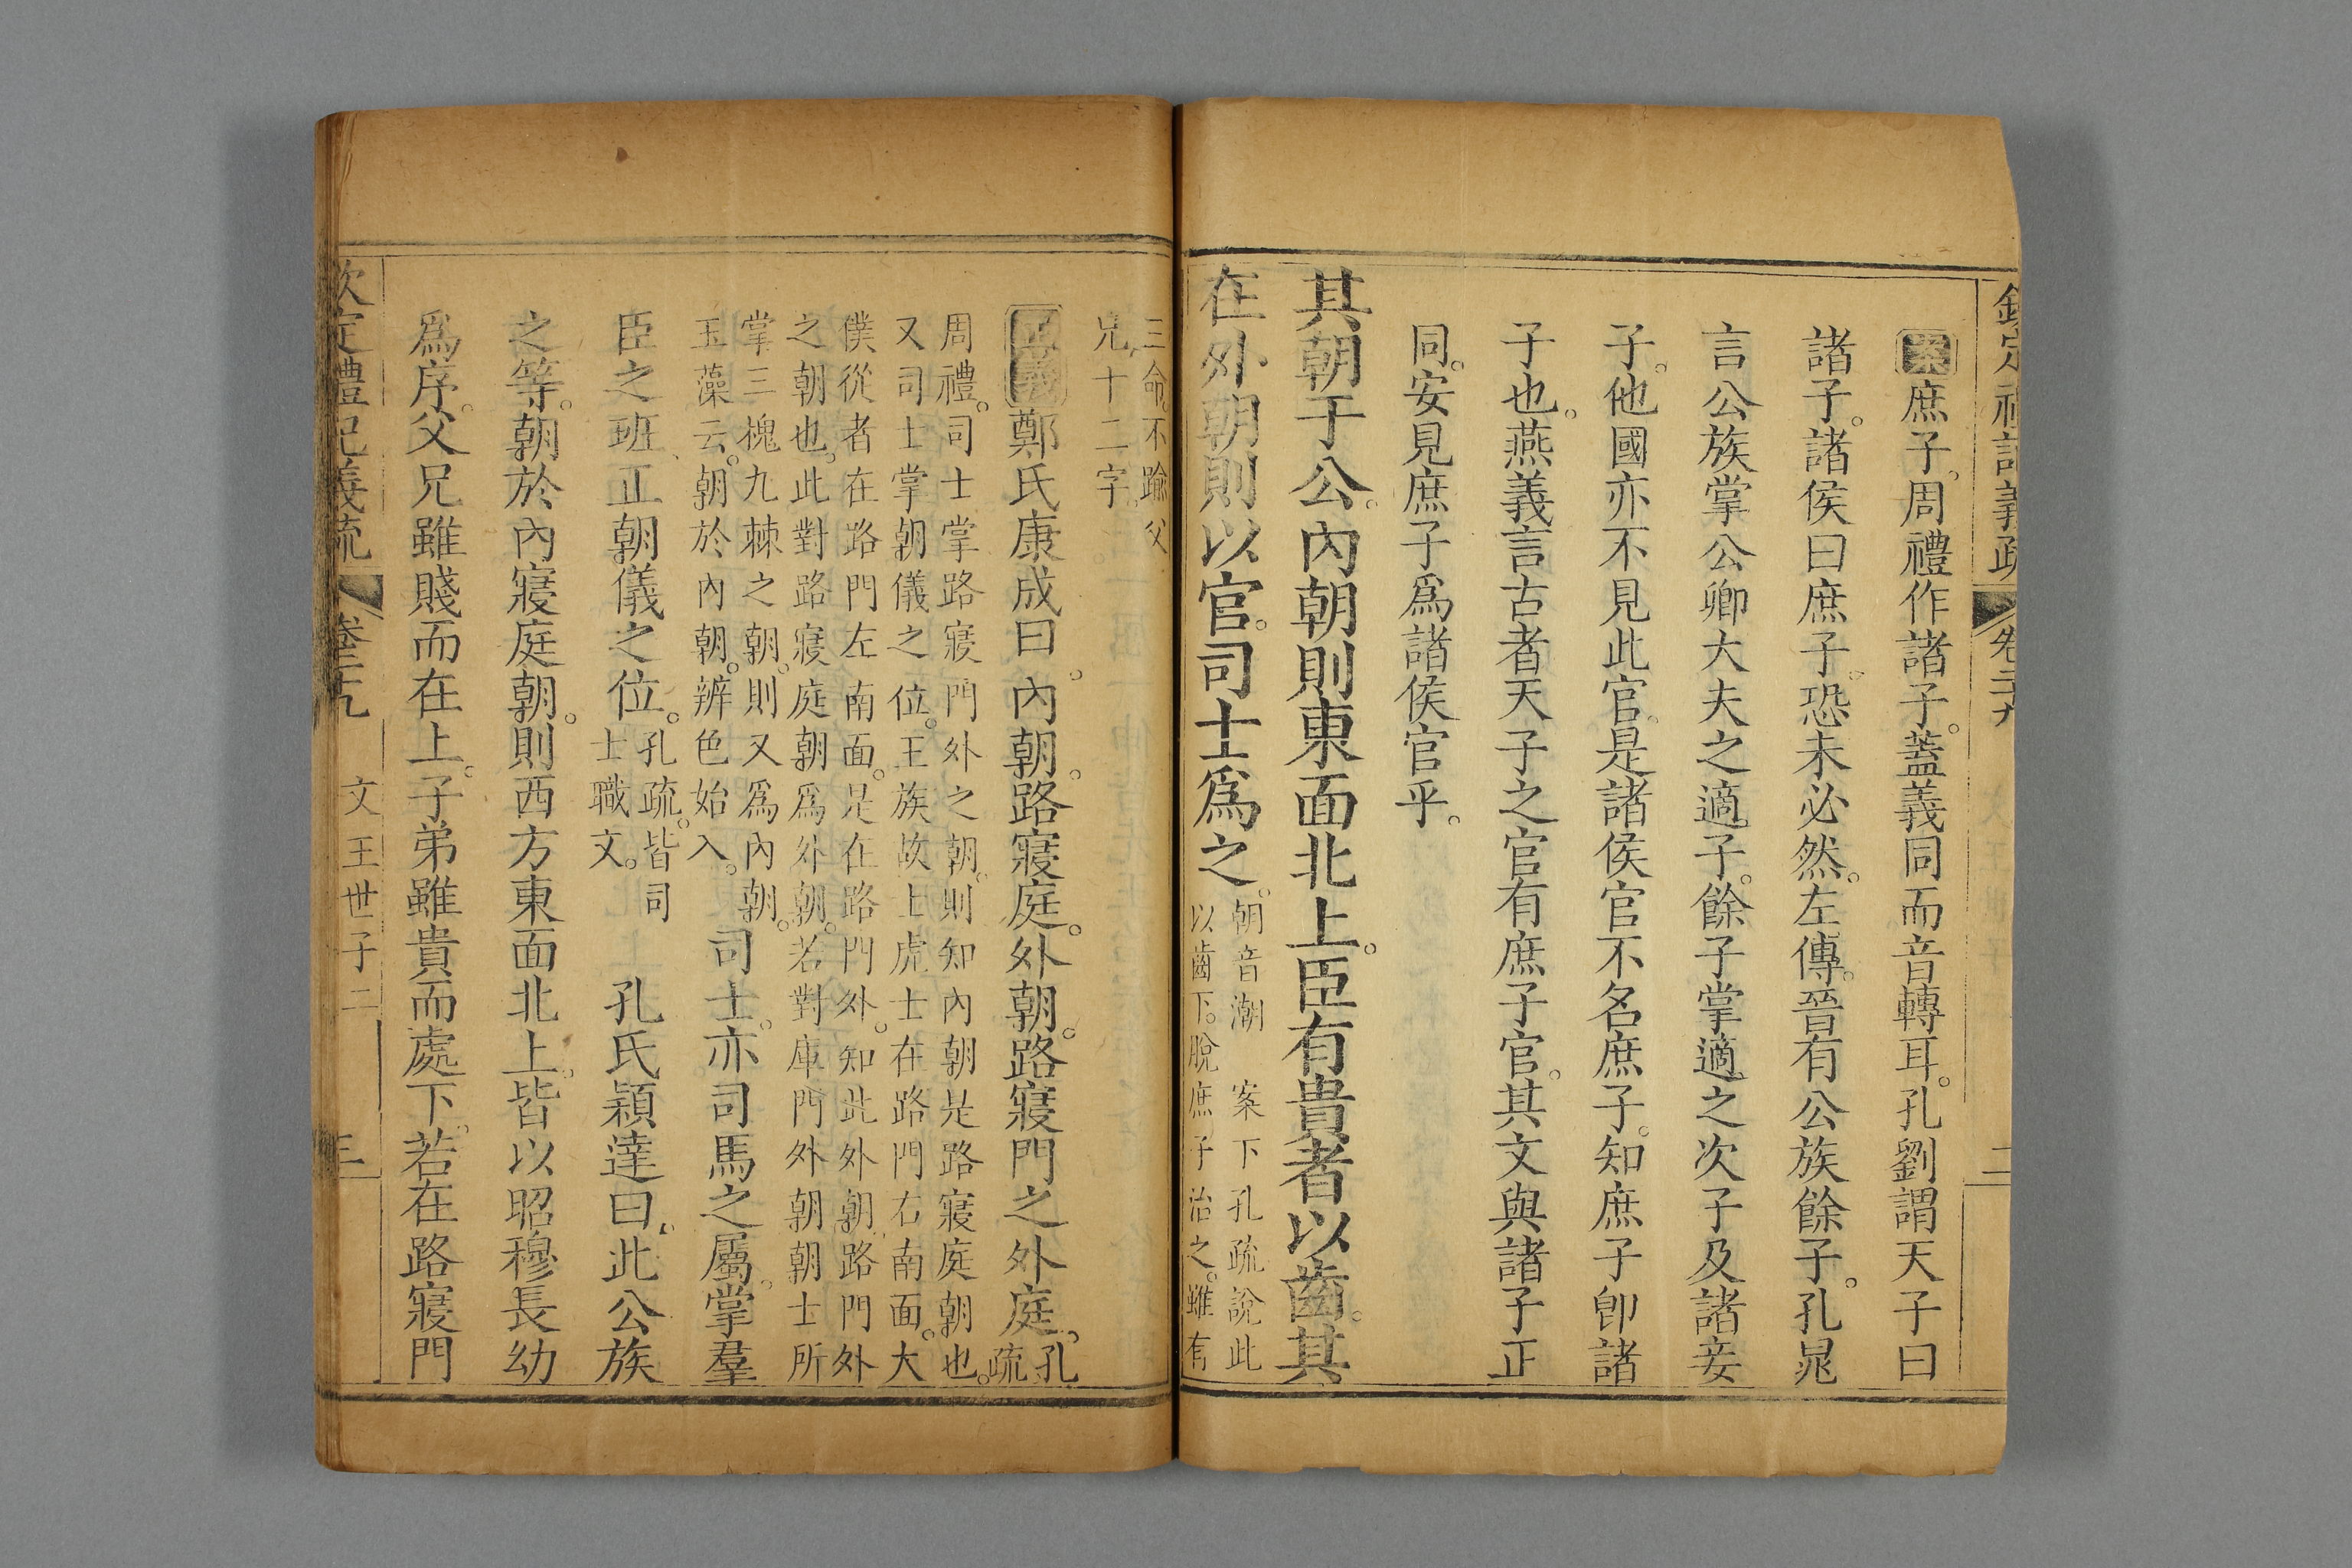 欽定禮記義疏 卷二十九 二
案庶子。周禮作諸子。蓋義同而音轉耳。孔劉謂天子曰
諸子。諸侯曰庶子。恐未必然。左傳。晉有公族餘子。孔晁
言公族掌公卿大夫之適子。餘子掌適之次子及諸妾
子。他國亦不見此官。是諸侯官不名庶子。知庶子卽諸
子也。燕義言古者天子之官有庶子官。其文與諸子正
同。安見庶子爲諸侯官乎。
其朝于公。內朝則東面北上。臣有貴者以齒。其
在外朝則以官。司士爲之。
朝音潮 案下孔疏說此
以齒下。脫庶子治之。雖有
三命。不踰父
兄。十二字。
正義鄭氏康成曰。內朝。路寢庭。外朝。路寢門之外庭。
孔
疏
周禮。司士掌路寢門外之朝。則知內朝是路寢庭朝也。
又司士掌朝儀之位。王族故士虎士在路門右南面。大
僕從者在路門左南面。是在路門外。知此外朝。路門外
之朝也。此對路寢庭朝爲外朝。若對庫門外朝朝士所
掌三槐九棘之朝。則又爲內朝。
玉藻云。朝於內朝。辨色始入。
司士。亦司馬之屬。掌羣
臣之班。正朝儀之位。
孔疏。皆司
士職文。
孔氏穎達曰。此公族
之等。朝於內寢庭朝。則西方東面北上。皆以昭穆長幼
爲序。父兄雖賤而在上。子弟雖貴而處下。若在路寢門
欽定禮記義疏 卷二十九 文王世子二 三